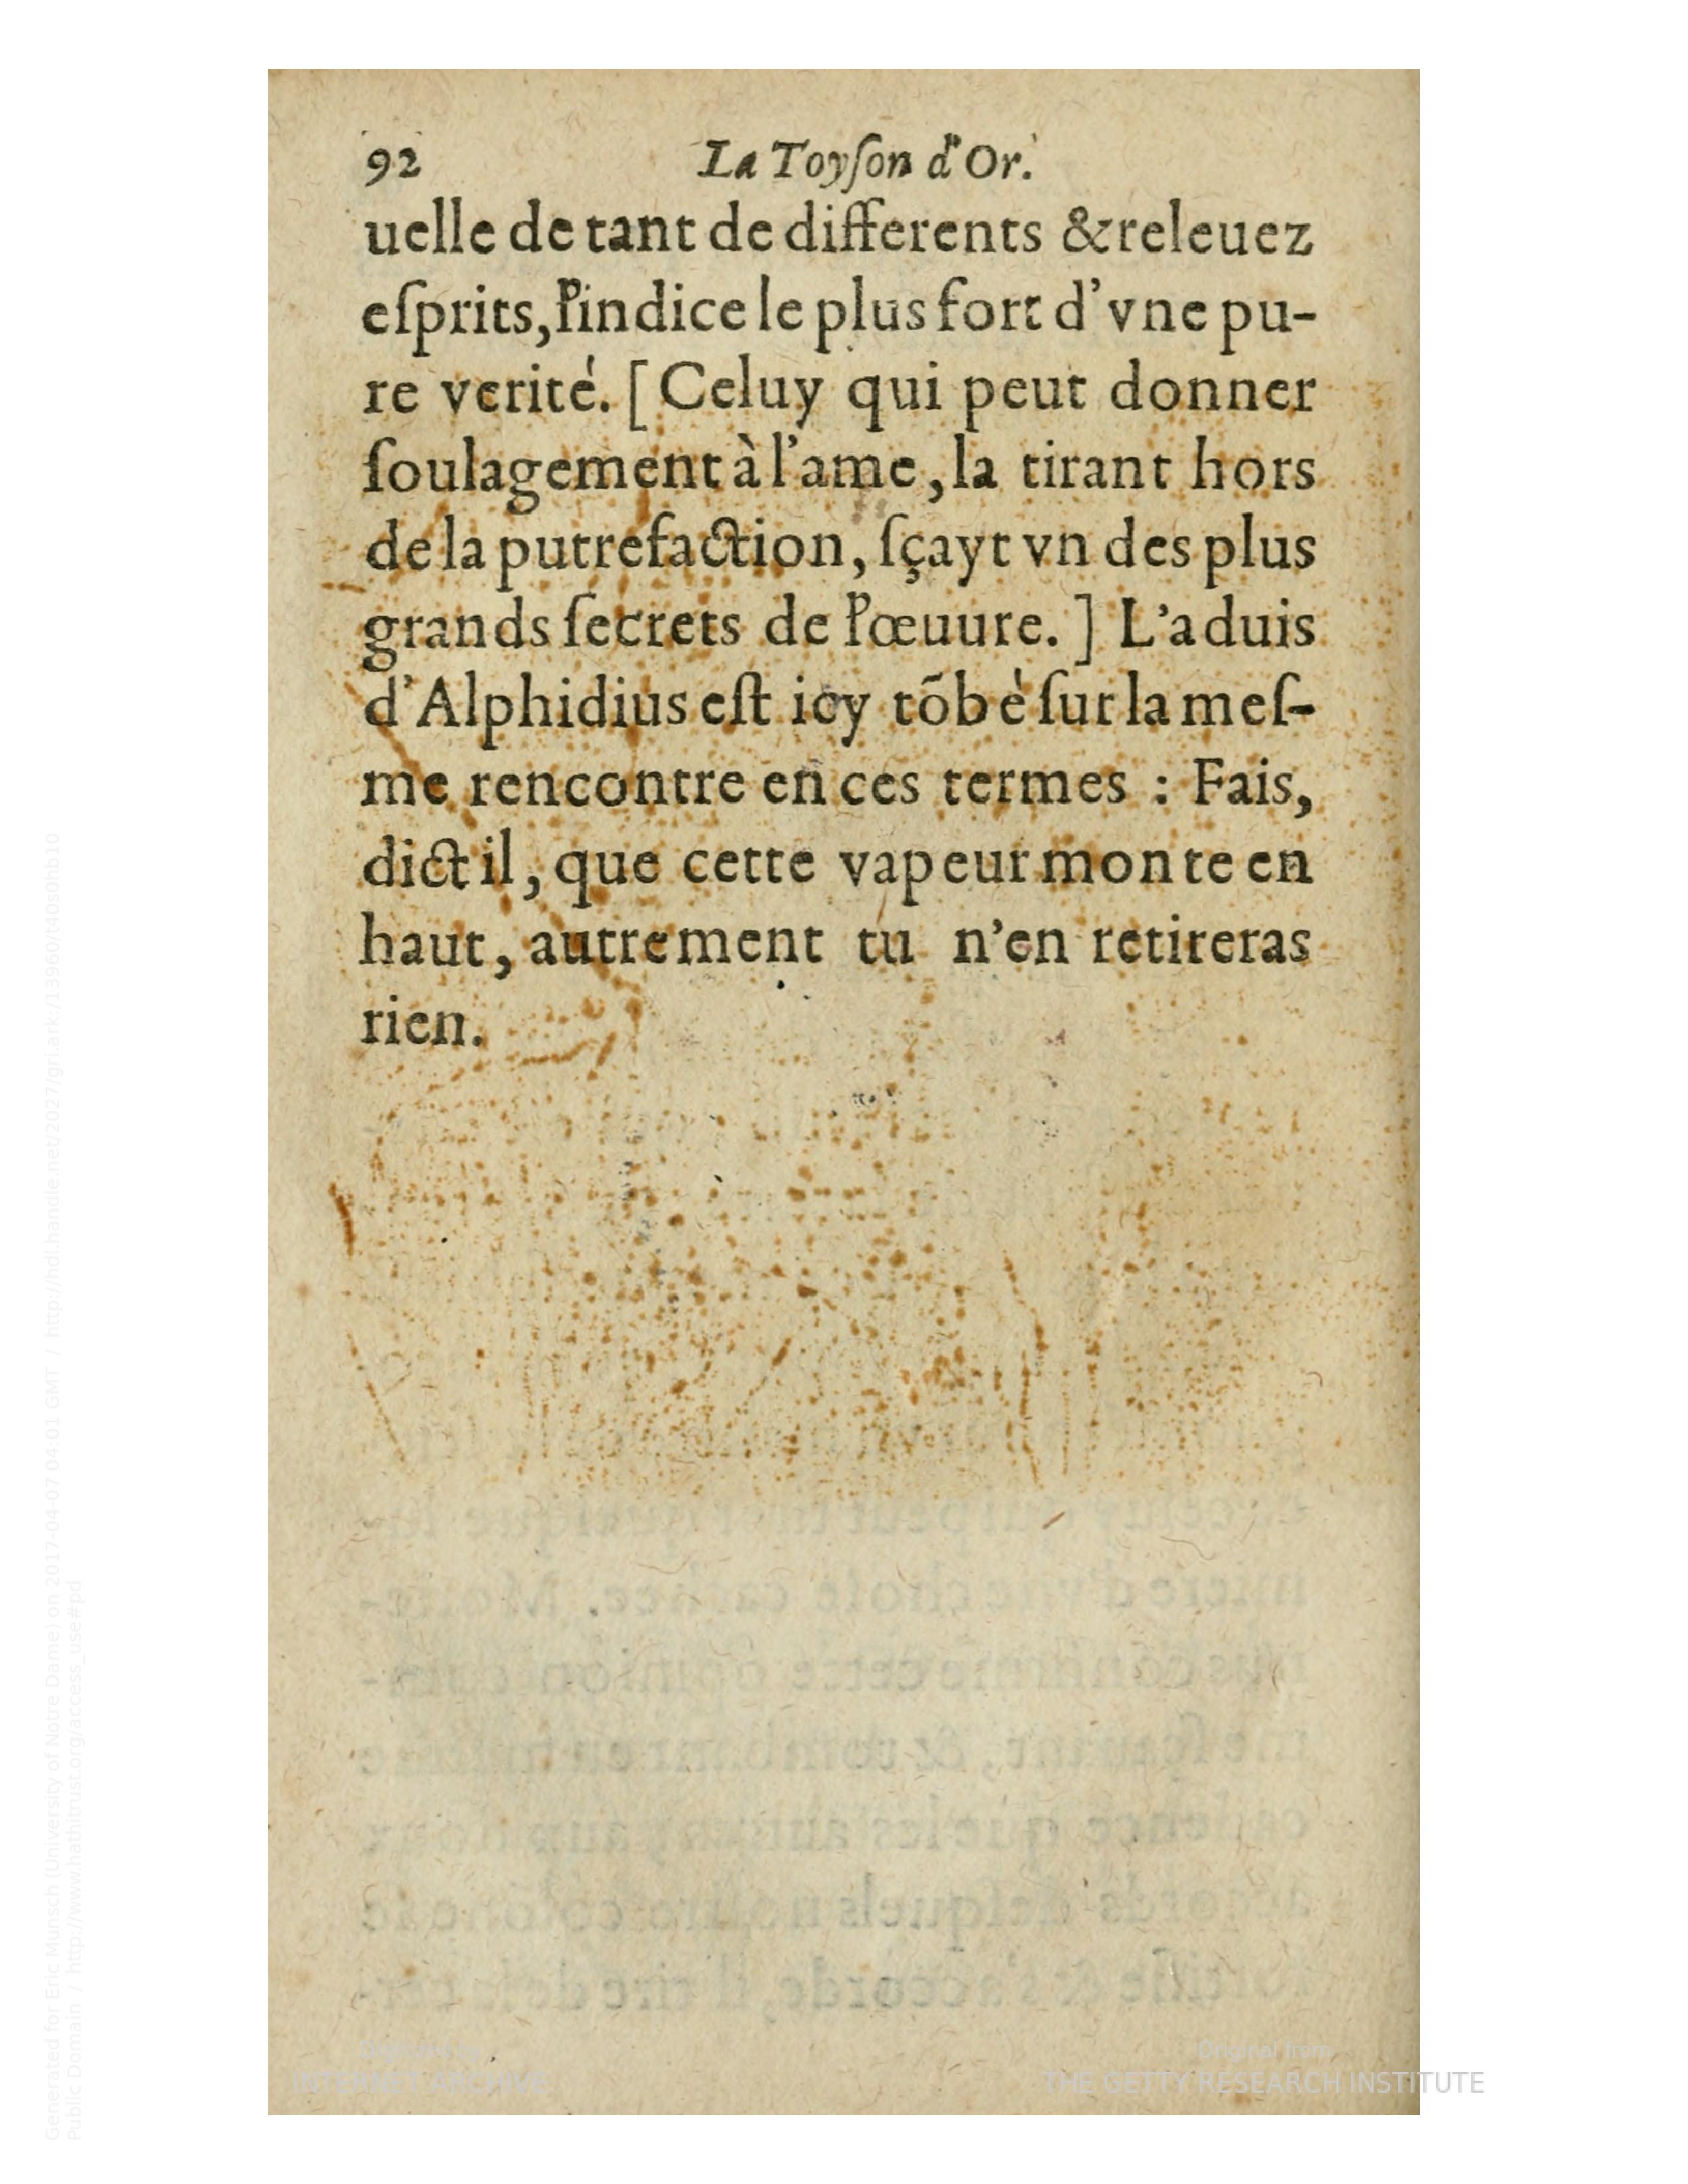 92 La Toyſon d'Or.
uelle de tant de differents & releuez
eſprits, l'indice le plus fort d'vne pu-
re verité. [ Celuy qui peut donner
ſoulagement à l'ame, la tirant hors
de la putrefaction, ſçayt vn des plus
grands ſecrets de l'œuure. ] L'aduis
d'Alphidius eſt icy tõbè ſur la meſ-
me rencontre en ces termes : Fais,
dict il, que cette vapeur monte en
haut, autrement tu n'en retireras
rien.
Generated for Eric Munsch (University of Notre Dame) on 2017-04-07 04:01 GMT / http://hdl.handle.net/2027/gri.ark:/13960/t40s0hb10
Public Domain / http://www.hathitrust.org/access_use#pd
Digitized by
INTERNET ARCHIVE
Original from
THE GETTY RESEARCH INSTITUTE